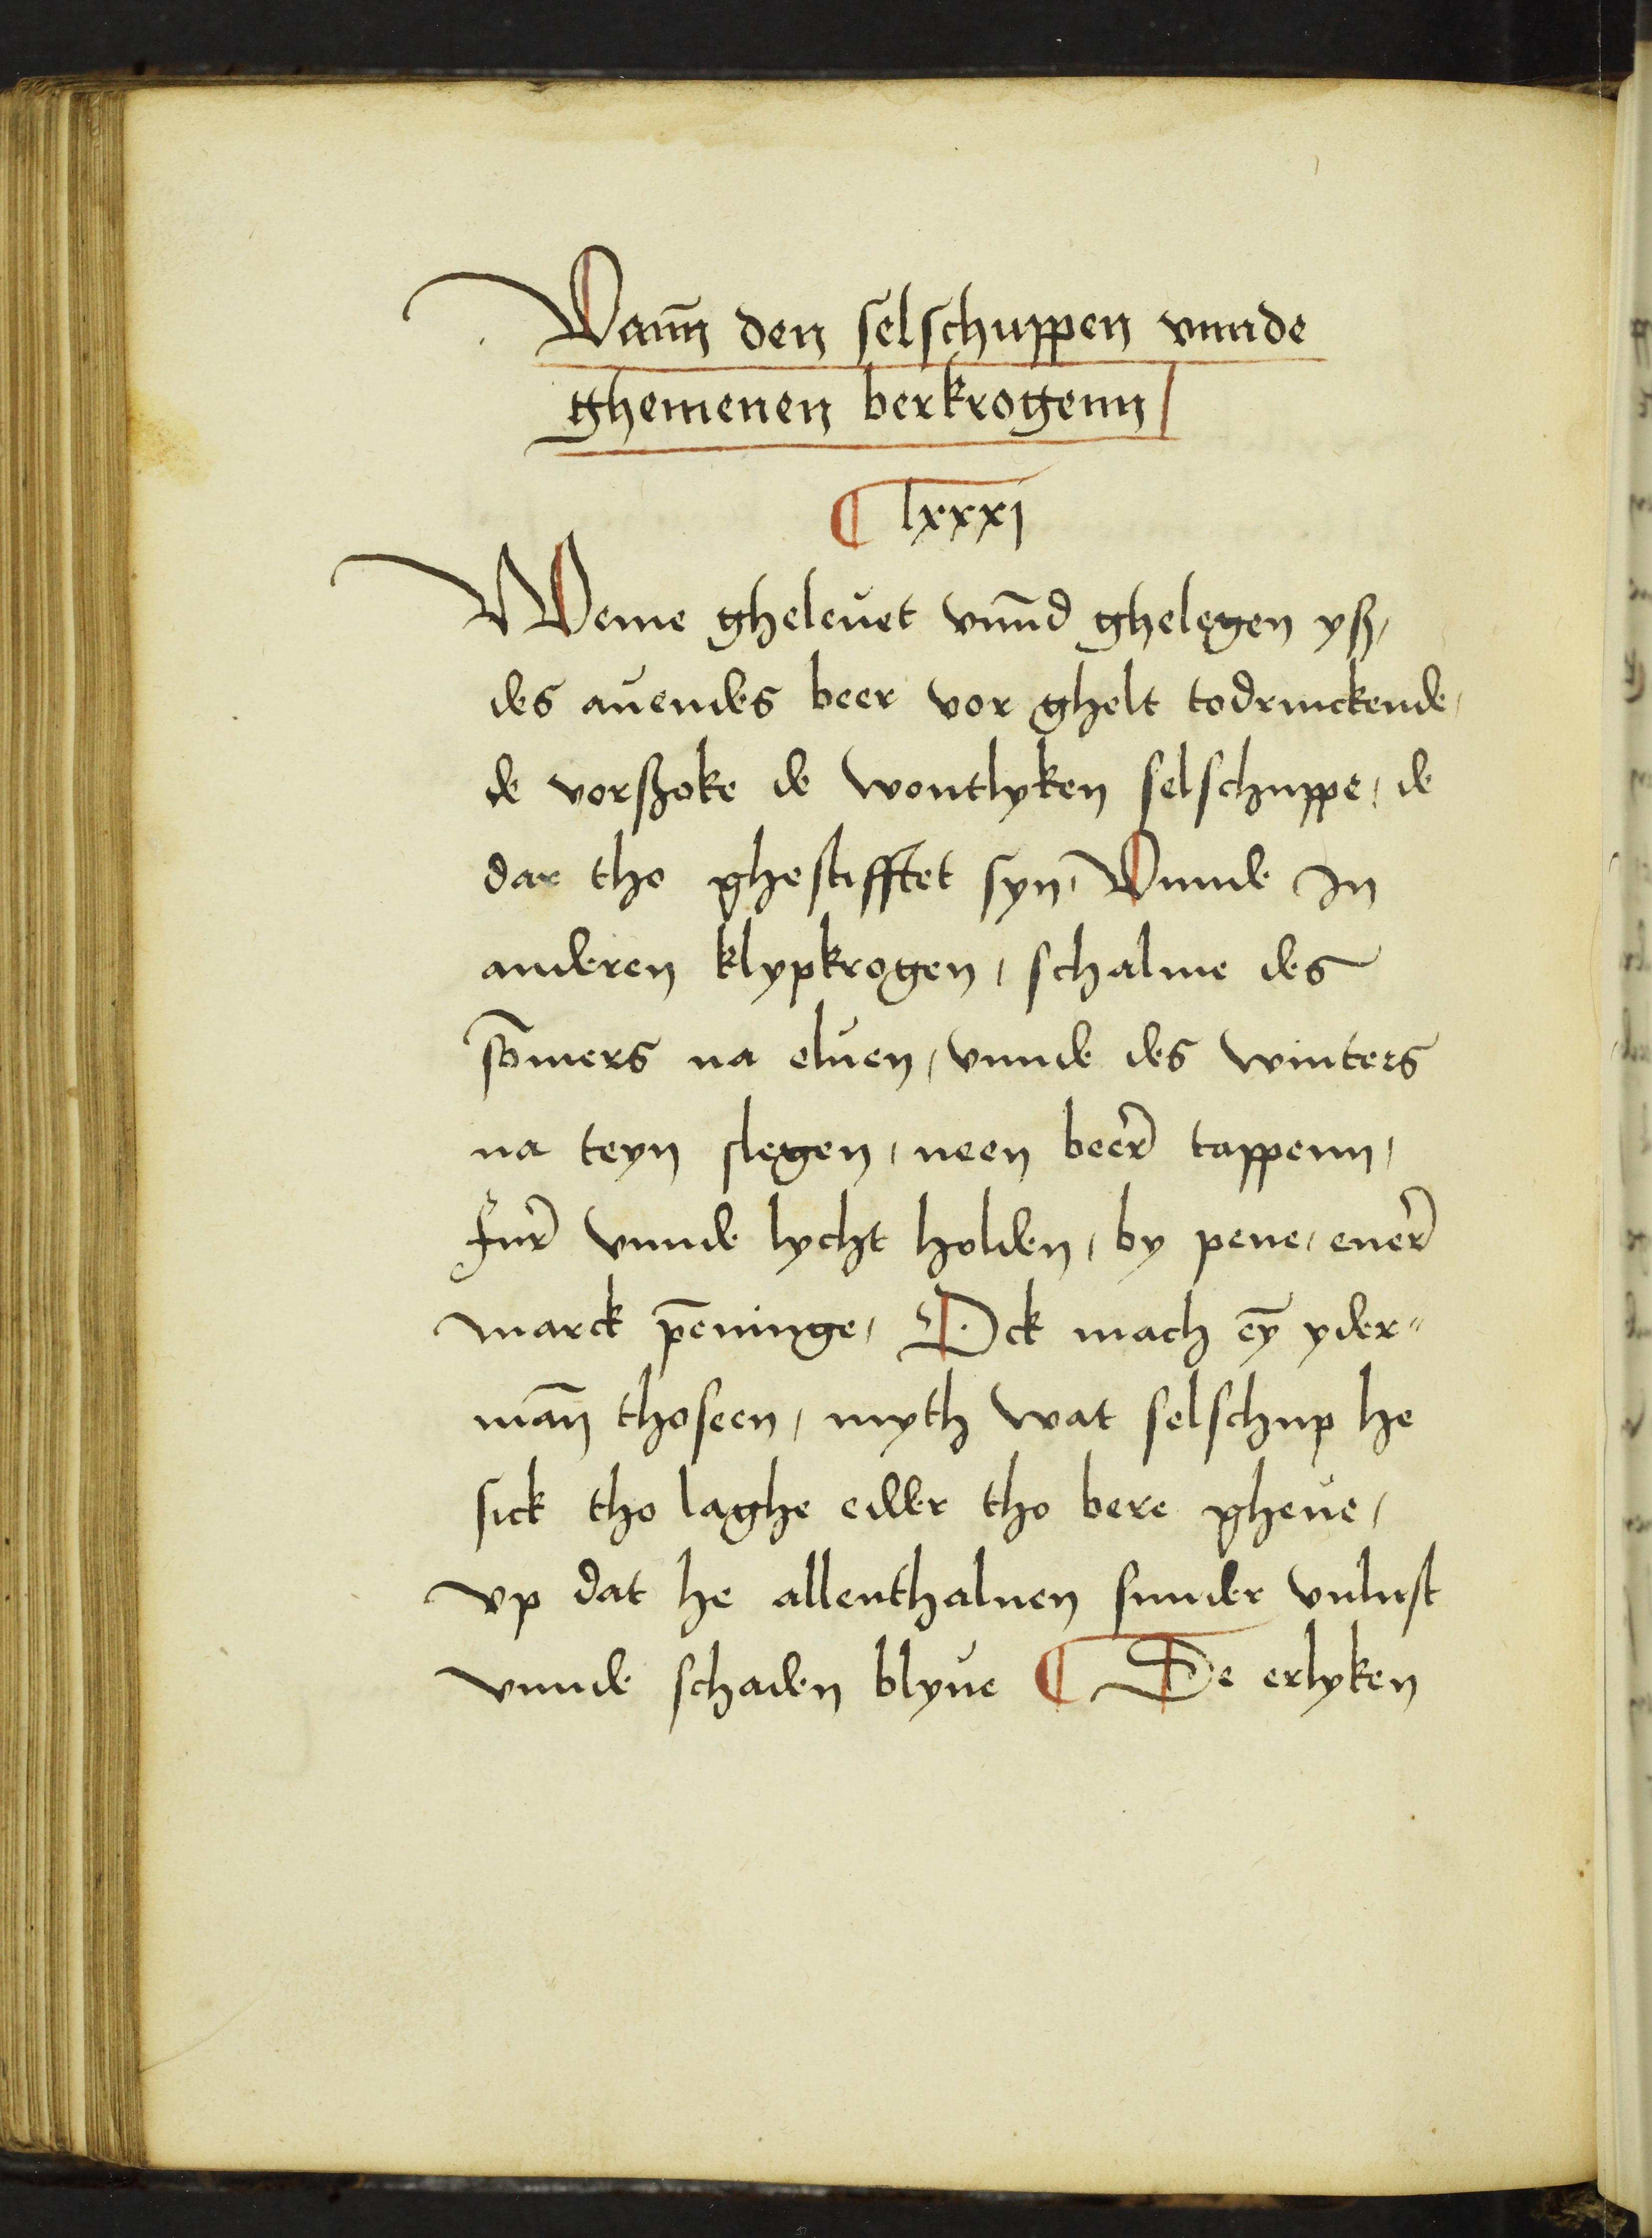 Vann̄ den selschuppen vnnde
ghemenen berkrogenn
¶ lxxxj
Weme gheleuet vnn̄d ghelegen yß,
des auendes beer vor ghelt todrinckende,
de vorßoke de wontlyken selschuppe, de
dar tho ghestifftet syn, Vnnde In
anderen klypkrogen, schalme des
so̅mers na eluen, vnnde des winters
na teyn slegen, neen beer̄ tappenn,
fur̄ vnnde lycht holden, by pene, ener̄
marck pe̅ninge, Ock mach ey̅ yder⸗
man̄ thoseen, myth wat selschup he
sick tho laghe edder tho bere gheue,
vp dat he allenthaluen sunder vnlust
vnnde schaden blyue ¶ De erlyken